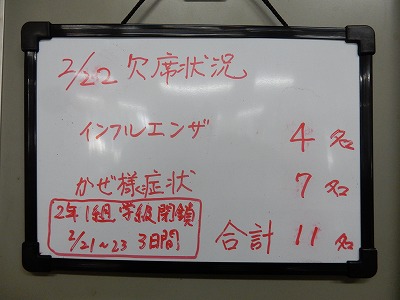 2/22 欠席状況
インフルエンザ 4名
かぜ様症状 7名
2年1組 学級閉鎖
2/21~23 3日間
合計 11名